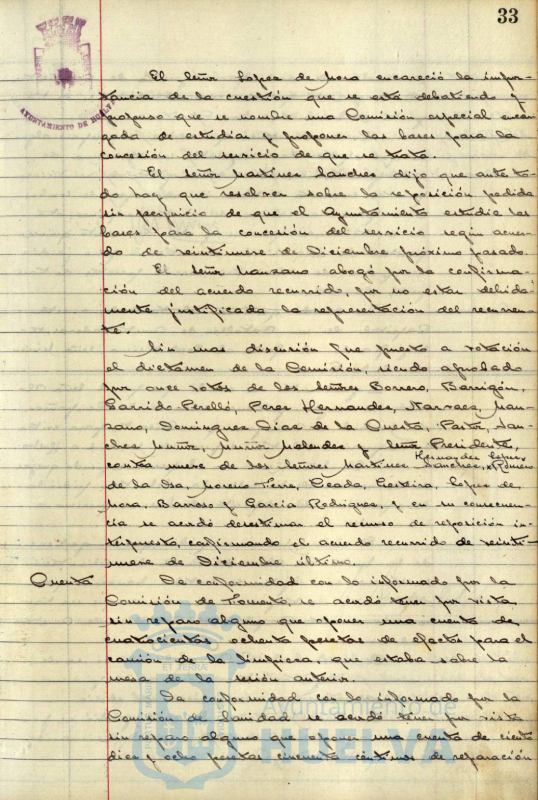 33
AYUNTAMIENTO DE HUELVA
El Señor Lopez de Mora encareció la impor-
tancia de la cuestión que se está debatiendo y
propuso que se nombre una Comisión especial encar-
gada de estudiar y proponer las bases para la
concesión del servicio de que se trata.
El Señor Martinez Sanchez dijo que ante to-
do hay que resolver sobre la reposición pedida
sin perjuicio de que el Ayuntamiento estudie las
bases para la concesión del servicio según acuer-
do de veintinueve de Diciembre próximo pasado.
El Señor Manzano abogó por la confirma-
ción del acuerdo recurrido, por no estar debida-
mente justificada la representación del recurren-
te.
Sin mas discusión fue puesto a votación
el dictamen de la Comisión, siendo aprobado
por once votos de los Señores Borrero, Barrigón,
Garrido Perelló, Perez Hernandez, Narvaez, Man-
zano, Dominguez Diaz de la Cuesta, Pastor, San-
chez Muñoz, Muñoz Melendez y Señor Presidente,
contra nueve de los Señores Martinez Sanchez, Hernandez Lopez, Romero
de la Osa, Moreno Feria, Ceada, Lopez de
Mora, Barroso y Garcia Rodriguez, y en su consecuen-
cia se acordó desestimar el recurso de reposición in-
terpuesto, confirmando el acuerdo recurrido de veinti-
nueve de Diciembre último.
Cuenta
De conformidad con lo informado por la
Comisión de Fomento, se acordó tener por vista
sin reparo alguno que oponer una cuenta de
cuatrocientas ochenta pesetas de efectos para el
camión de la limpieza, que estaba sobre la
mesa de la sesión anterior.
De conformidad con lo informado por la
Comisión de Sanidad se acordó tener por vista
sin reparo alguno que oponer una cuenta de ciento
diez y ocho pesetas cincuenta céntimos de reparación
Ayuntamiento de
HUELVA